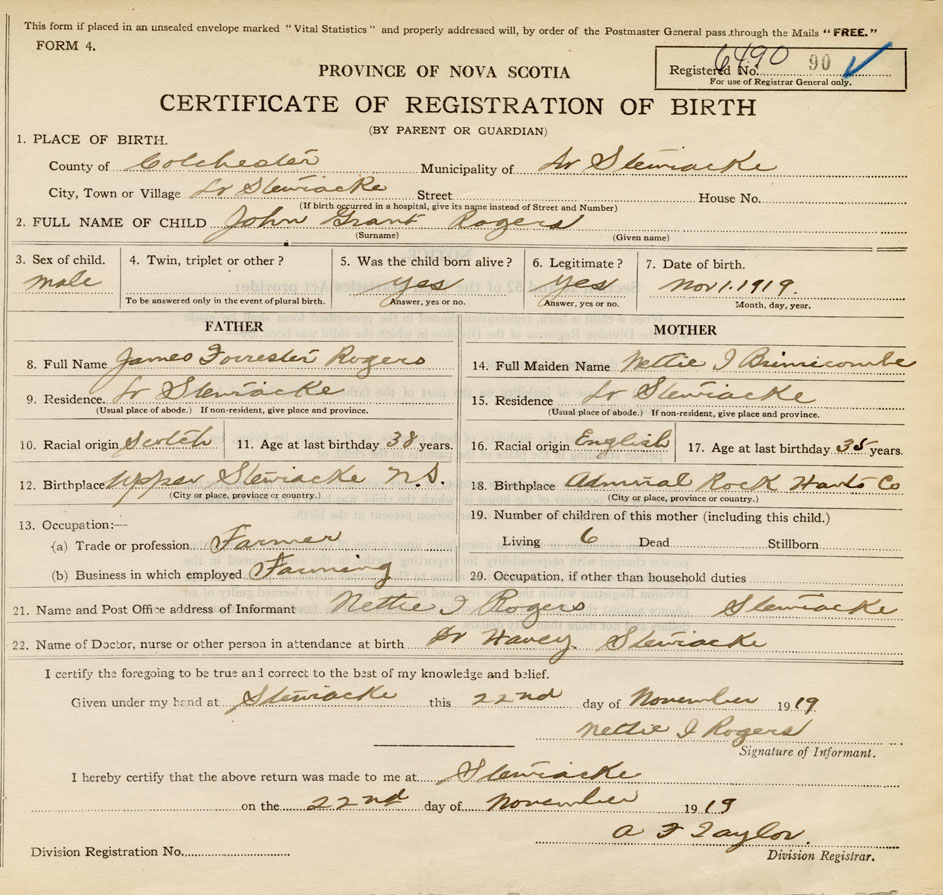 This form if placed in an unsealed envelope marked "Vital Statistics" and properly addressed will, by order of the Postmaster General pass through the Mails "FREE."
FORM 4.
6490
Registered No. 90
For use of Registrar General only.
PROVINCE OF NOVA SCOTIA
CERTIFICATE OF REGISTRATION OF BIRTH
(BY PARENT OR GUARDIAN)
1. PLACE OF BIRTH.
County of Colchester Municipality of Lr Stewiacke
City, Town or Village Lr Stewiacke Street House No.
(If birth occurred in a hospital, give its name instead of Street and Number)
2. FULL NAME OF CHILD John Grant Rogers
(Surname) (Given name)
3. Sex of child. 4. Twin, triplet or other? 5. Was the child born alive? 6. Legitimate? 7. Date of birth.
male yes yes Nov 1. 1919.
To be answered only in the event of plural birth. Answer, yes or no. Answer, yes or no. Month, day, year.
FATHER MOTHER
8. Full Name James Forrester Rogers 14. Full Maiden Name Nettie I Brimicombe
9. Residence. Lr Stewiacke 15. Residence Lr Stewiacke
(Usual place of abode.) If non-resident, give place and province. (Usual place of abode.) If non-resident, give place and province.
10. Racial origin Scotch 11. Age at last birthday 38 years. 16. Racial origin English 17. Age at last birthday 35 years.
12. Birthplace Upper Stewiacke N.S. 18. Birthplace Admiral Rock Hants Co
(City or place, province or country.) (City or place, province or country.)
13. Occupation:— 19. Number of children of this mother (including this child.)
(a) Trade or profession Farmer Living 6 Dead Stillborn
(b) Business in which employed Farming 20. Occupation, if other than household duties
21. Name and Post Office address of Informant Nettie I Rogers Stewiacke
22. Name of Doctor, nurse or other person in attendance at birth Dr Havey Stewiacke
I certify the foregoing to be true and correct to the best of my knowledge and belief.
Given under my hand at Stewiacke this 22nd day of November 1919
Nettie I Rogers
Signature of Informant.
I hereby certify that the above return was made to me at Stewiacke
on the 22nd day of November 1919
A F Taylor
Division Registration No. Division Registrar.